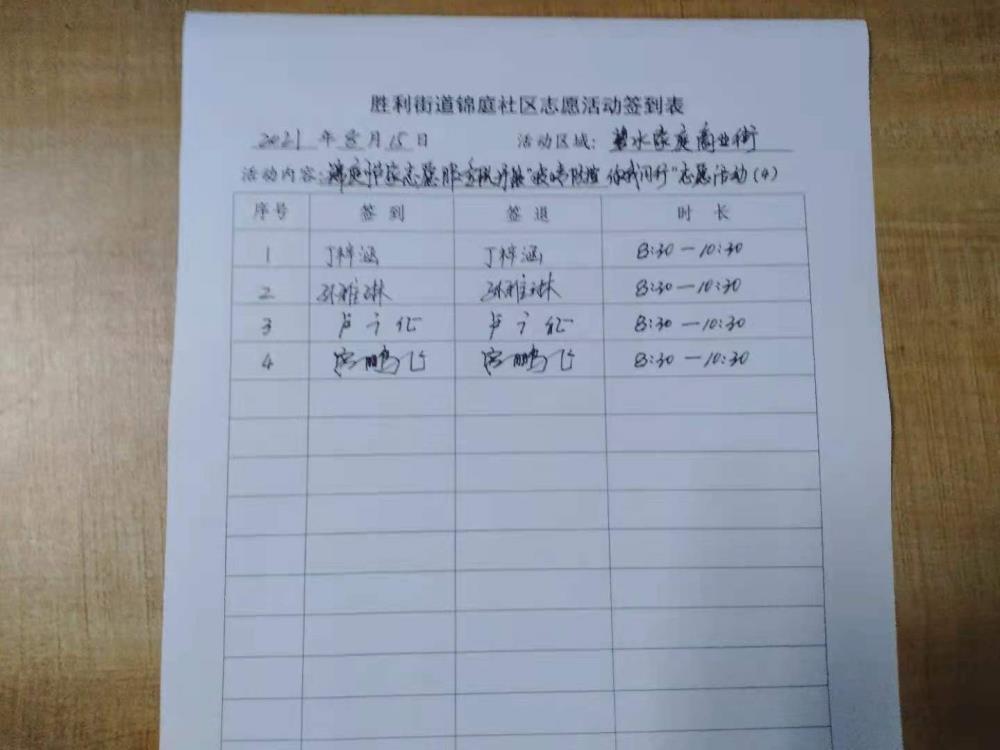 胜利街道锦庭社区志愿活动签到表
2021 年 8 月 15 日 活动区域: 碧水家庭商业街
活动内容: 锦庭 志愿服务队开展" 防 你我同行"志愿活动(4)
序号 签到 签退 时长
1 丁梓涵 丁梓涵 8:30—10:30
2 孙雅琳 孙雅琳 8:30—10:30
3 卢广 卢广 8:30—10:30
4 鹏飞 鹏飞 8:30—10:30